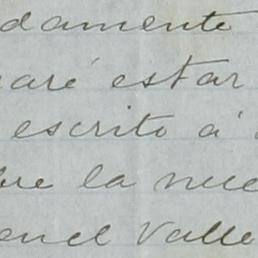 damente
aré estar
escrito á
bre la nece
en el Valle